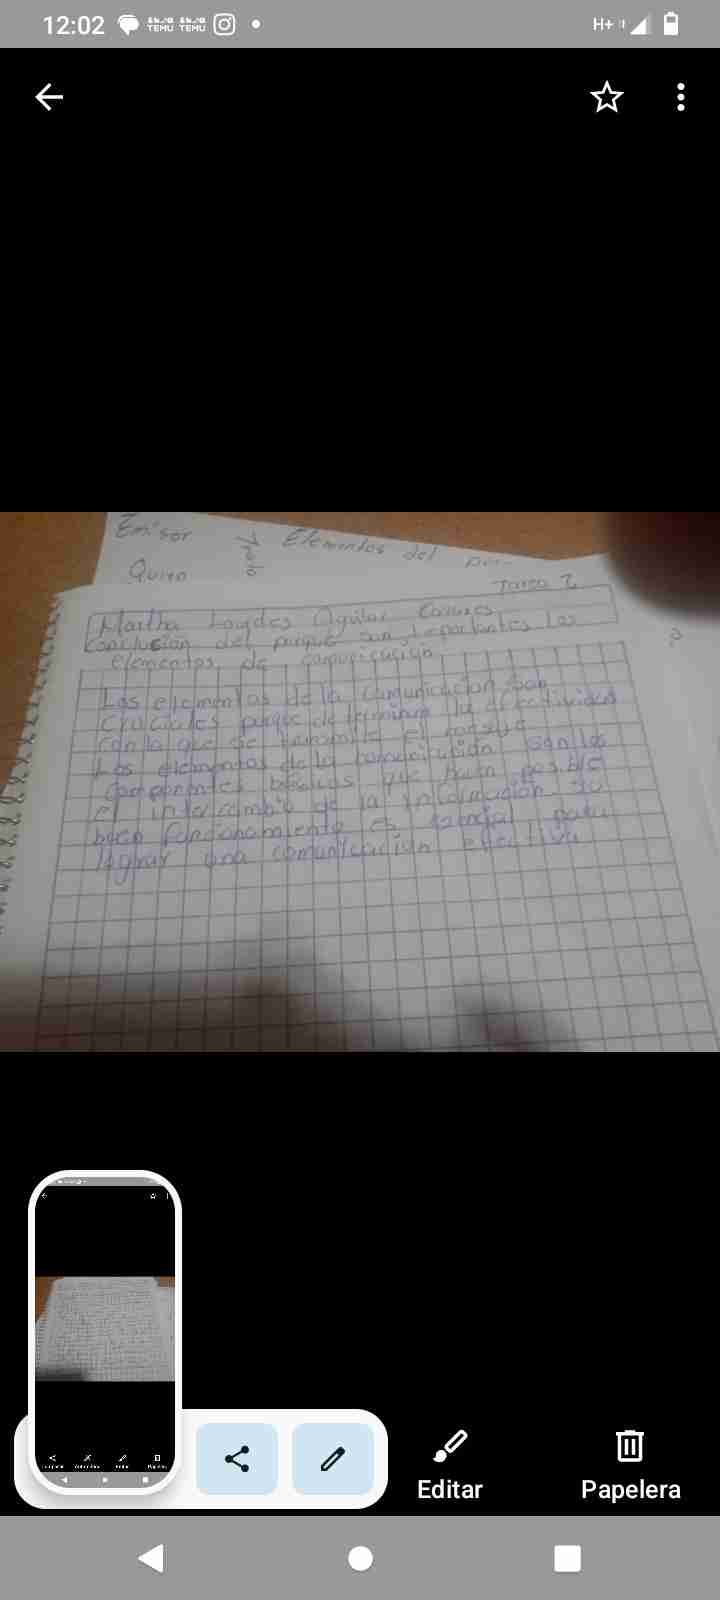 12:02
TEMU TEMU
H+
Emisor
Elementos del
Quien
Tarea 2
Martha Lourdes Aguilar
Conclusion del porque son importantes los
elementos de comunicacion
Los elementos de la comunicacion son
cruciales porque determinan la efectividad
con la que se transmite el
Los elementos de la comunicacion son los
componentes básicos que hacen posible
el intercambio de la informacion su
buen funcionamiento es para
lograr una comunicacion efectiva
Editar
Papelera